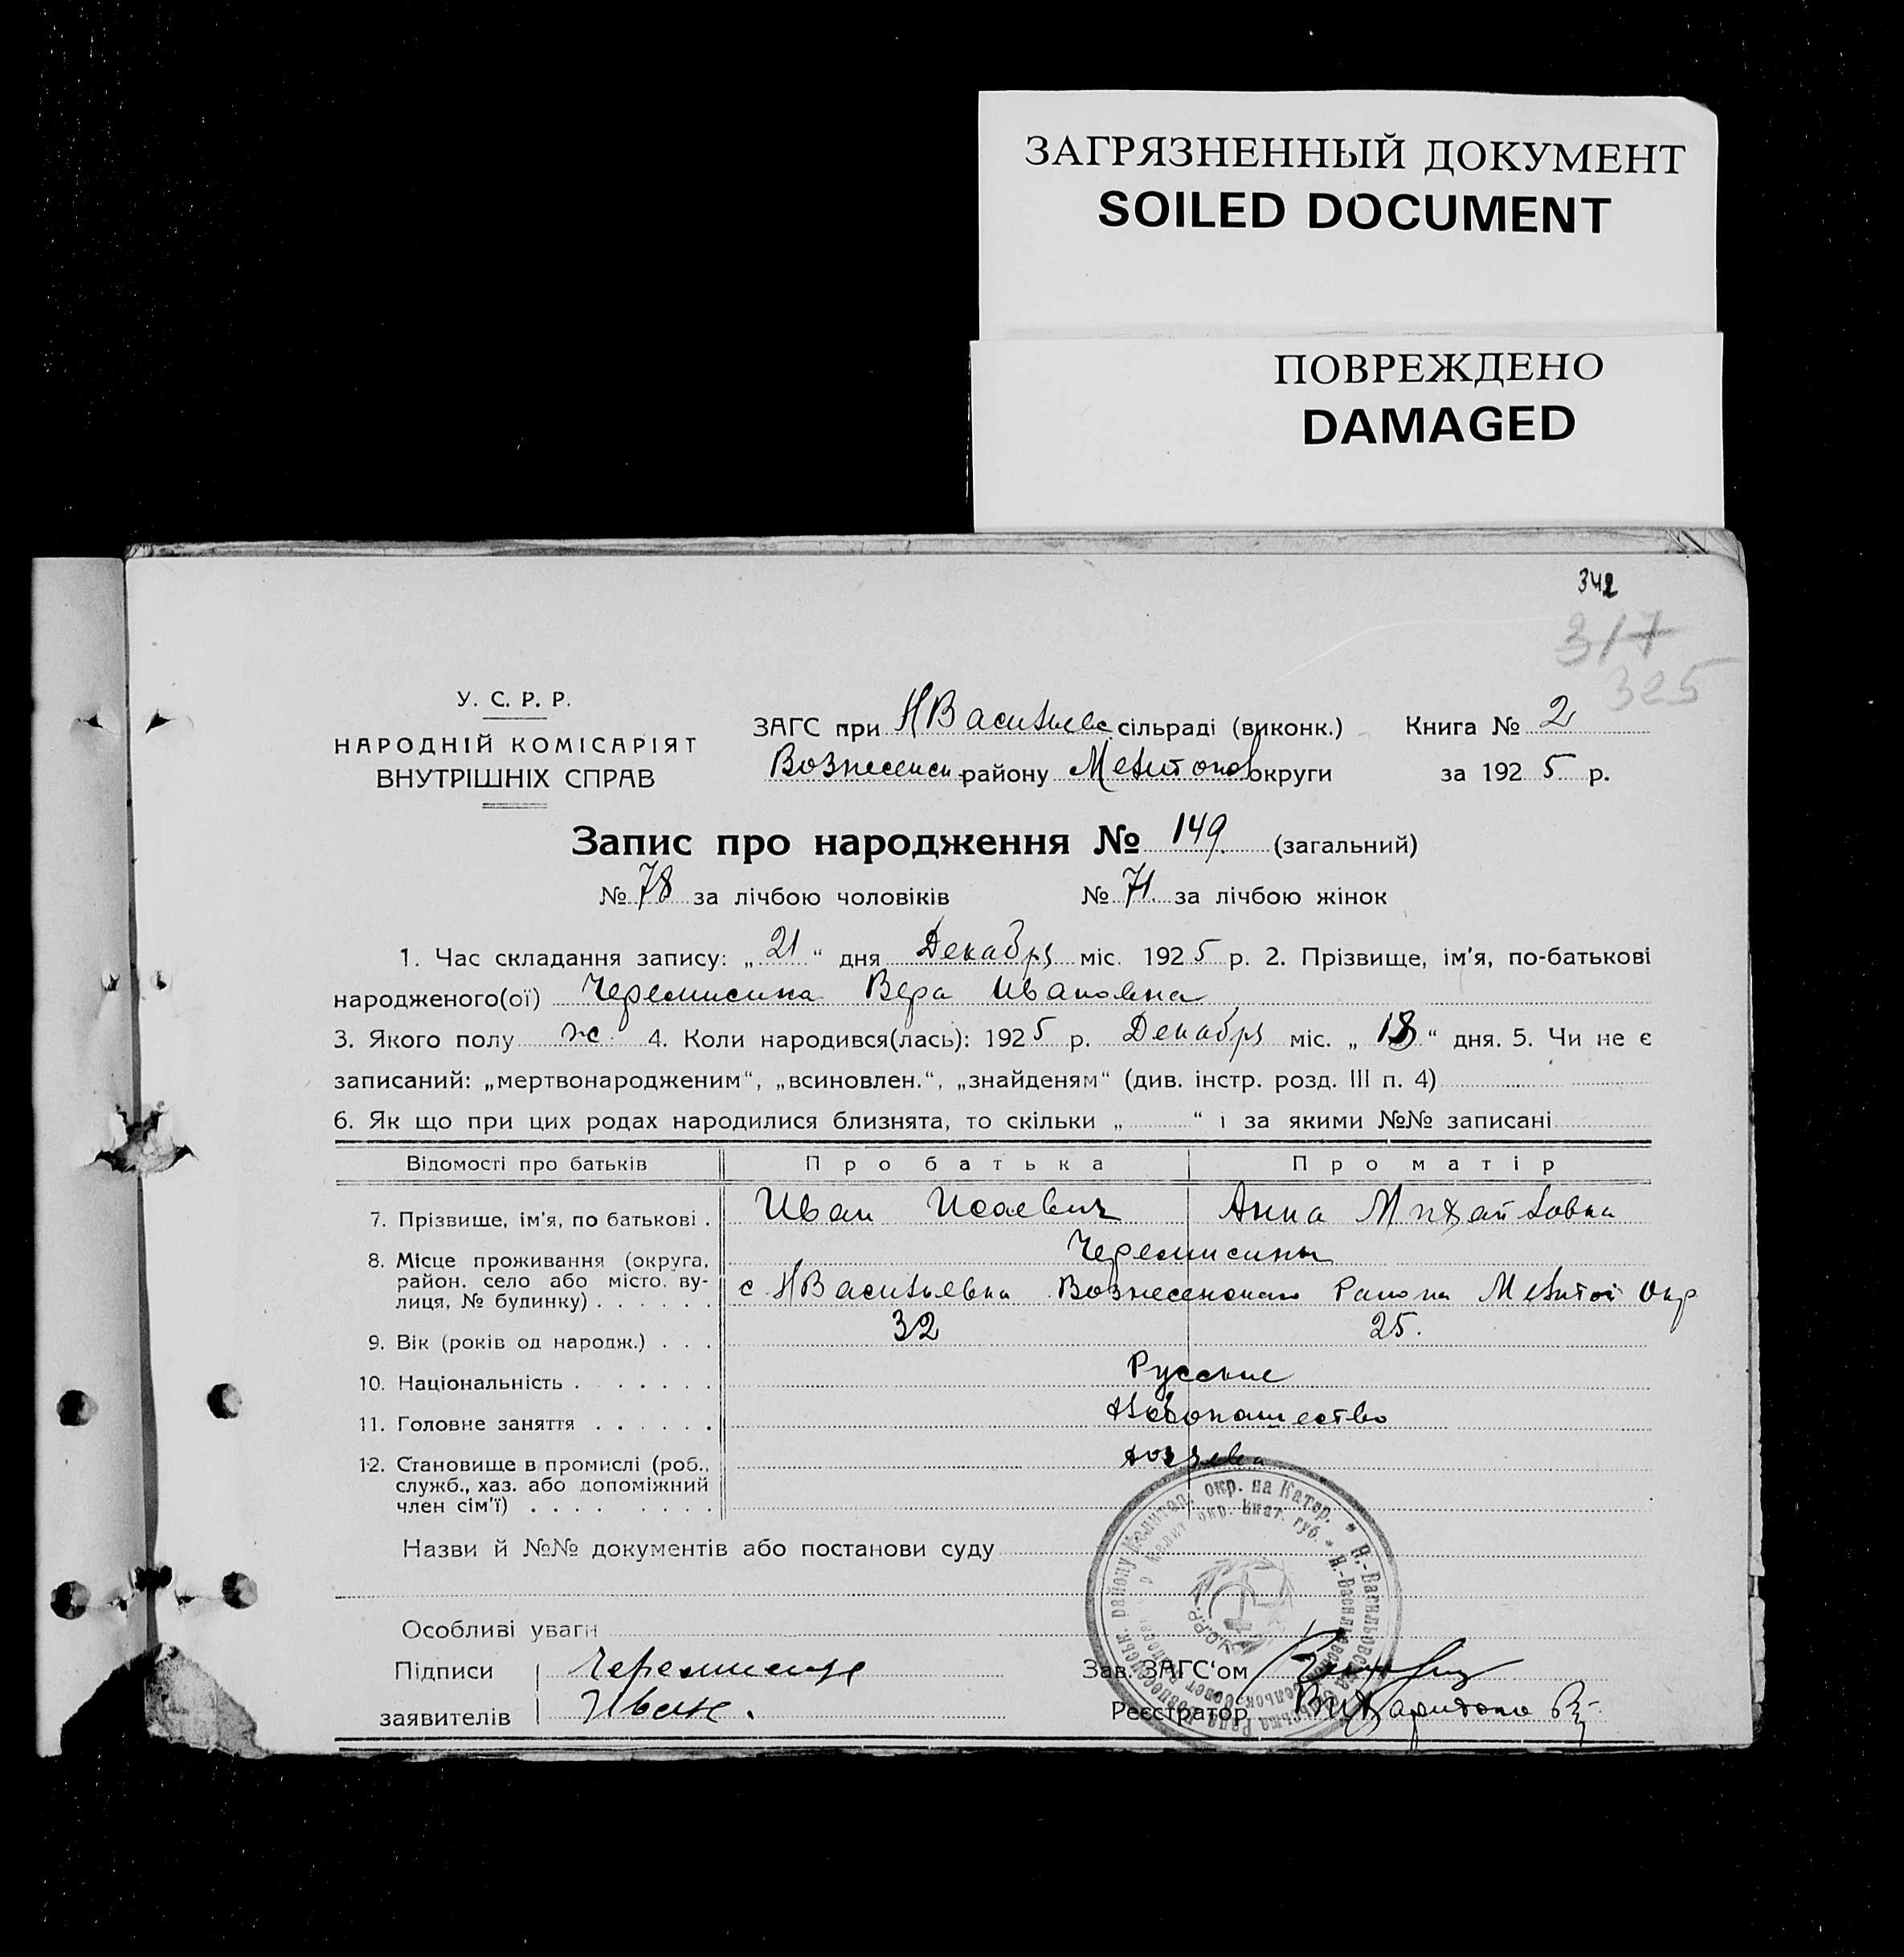 ЗАГРЯЗНЕННЫЙ ДОКУМЕНТ
SOILED DOCUMENT
ПОВРЕЖДЕНО
DAMAGED
342
317
325
У. С. Р. Р.
НАРОДНІЙ КОМІСАРІЯТ
ВНУТРІШНІХ СПРАВ
ЗАГС при НВасильевс сільраді (виконк.) Книга № 2
Вознесенск району Мелитопов округи за 192 5 р.
Запис про народження № 149 (загальний)
№ 78 за лічбою чоловіків № 71. за лічбою жінок
1. Час складання запису: „ 21 “ дня Декабря міс. 192 5 р. 2. Прізвище, ім'я, по-батькові
народженого(ої) Черемисина Вера Ивановна
3. Якого полу ж. 4. Коли народився(лась): 192 5 р. Декабря міс. „ 18 “ дня. 5. Чи не є
записаний: „мертвонародженим“, „всиновлен.“, „знайденям“ (див. інстр. розд. III п. 4)
6. Як що при цих родах народилися близнята, то скільки „ “ і за якими №№ записані
Відомості про батьків Про батька Про матір
7. Прізвище, ім'я, по батькові . Иван Исаевич Анна Михайловна
Черемисины
8. Місце проживання (округа,
район, село або місто, ву-
лиця, № будинку) . . . . . . с НВасильевка Вознесенского Района Мелитоп Окр
9. Вік (років од народж.) . . . 32 25.
10. Національність . . . . . . . Русские
11. Головне заняття . . . . . . Хлебопашество
12. Становище в промислі (роб.,
служб., хаз. або допоміжний
член сім'ї) . . . . . . . . .
Назви й №№ документів або постанови суду
Особливі уваги
Підписи Черемисин Зав. ЗАГС‘ом
заявителів Иван. Реєстратор